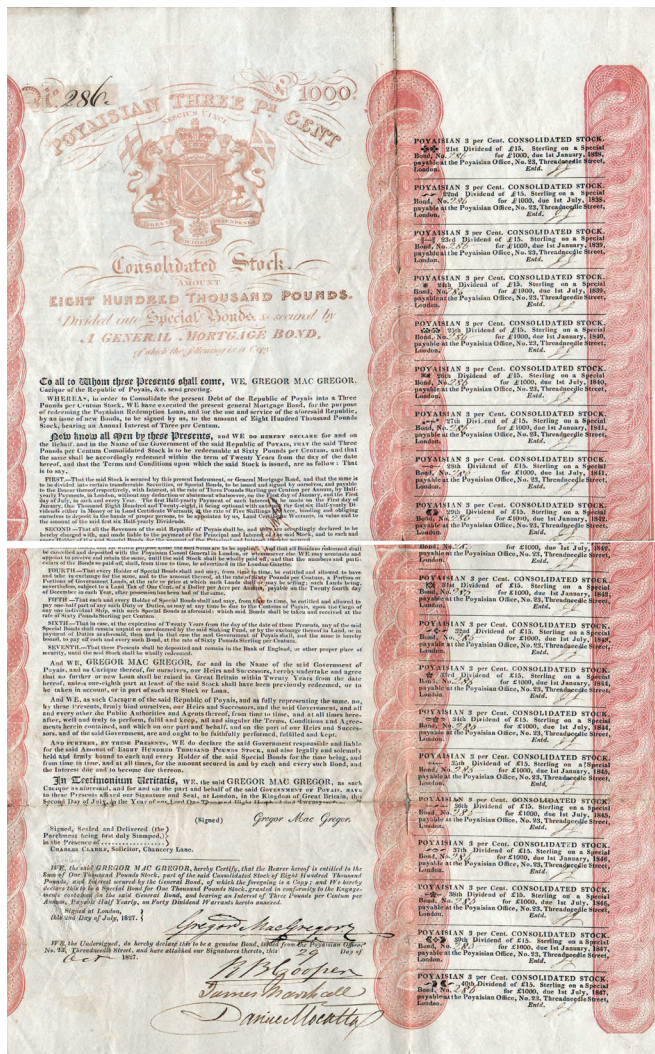 No. 286.
1000
POYAISIAN THREE PR CENT
Consolidated Stock.
AMOUNT
EIGHT HUNDRED THOUSAND POUNDS.
Divided into Special Bonds, & secured by
A GENERAL MORTGAGE BOND,
of which the following is a Copy.
To all to Whom these Presents shall come, WE, GREGOR MAC GREGOR,
Cacique of the Republic of Poyais, &c. send greeting.
WHEREAS, in order to Consolidate the present Debt of the Republic of Poyais into a Three
Pounds per Centum Stock, WE have executed the present general Mortgage Bond, for the purpose
of redeeming the Poyaisian Redemption Loan, and for the use and service of the aforesaid Republic,
by an issue of new Bonds, to be signed by us, to the amount of Eight Hundred Thousand Pounds
Stock, bearing an Annual Interest of Three per Centum.
Now know all Men by these Presents, and WE DO HEREBY DECLARE for and on
the Behalf, and in the Name of the Government of the said REPUBLIC of POYAIS, THAT the said Three
Pounds per Centum Consolidated Stock is to be redeemable at Sixty Pounds per Centum, and that
the same shall be accordingly redeemed within the term of Twenty Years from the day of the date
hereof, and that the Terms and Conditions upon which the said Stock is issued, are as follow: That
is to say,
FIRST.—That the said Stock is secured by this present Indenture, or General Mortgage Bond, and that the same is
to be divided into certain transferable Securities, or Special Bonds, to be issued and signed by ourselves, and payable
to the Bearer thereof respectively, with Interest, at the rate of Three Pounds Sterling per Centum per Annum, by Half-
yearly Payments, in London, without any deduction or abatement whatsoever, on the First day of January, and the First
day of July, in each and every Year. The first Half-yearly Payment of such Interest to be made on the First day of
January, One Thousand Eight Hundred and Twenty-eight, it being optional with us to pay the first six Half-yearly Di-
vidends either in Money or in Land Certificate Warrants, at the rate of Five Shillings per Acre, binding and obliging
ourselves to deposit in the hands of proper persons, to be appointed by us, Land Certificate Warrants, to
the amount of the said first six Half-yearly Dividends.
SECOND.—That all the Revenues of the said Republic of Poyais shall be, and are accordingly declared to be
hereby charged with, and made liable to the payment of the Principal and Interest of the said Stock, and to each and
be cancelled and deposited with the Poyaisian Consul General in London, or
appoint to receive and cancel the same, until the said Stock shall be wholly paid off; and that the numbers and parti-
culars of the Bonds so paid off, shall, from time to time, be advertised in the London Gazette.
FOURTH.—That every Holder of Special Bonds shall and may, from time to time, be entitled and allowed to have
and take in exchange for the same, and to the amount thereof, at the rate of Sixty Pounds per Centum, a Portion or
Portions of Government Lands, at the rate or price at which such Lands shall or may be selling; such Lands being,
nevertheless, subject to a Land Tax of One Cent of a Dollar per Acre per Annum, payable on the Twenty fourth day
of December in each Year, after possession has been had of the same.
FIFTH.—That each and every Holder of Special Bonds shall and may, from time to time, be entitled and allowed to
pay one-half part of any such Duty or Duties, as may at any time be due to the Customs of Poyais, upon the Cargo of
any one individual Ship, with such Special Bonds as aforesaid: which said Bonds shall be taken and received at the
rate of Sixty Pounds Sterling per Centum.
SIXTH.—That in case, at the expiration of Twenty Years from the day of the date of these Presents, any of the said
Special Bonds shall remain unpaid or unredeemed by the said Sinking Fund, or by the exchange thereof in Land, or in
payment of Duties as aforesaid, then and in that case the said Government of Poyais shall, and the same is hereby
bound, to pay off each and every such Bond, at the rate of Sixty Pounds Sterling per Centum.
SEVENTH.—That these Presents shall be deposited and remain in the Bank of England, or other proper place of
security, until the said Stock shall be wholly redeemed.
AND WE, GREGOR MAC GREGOR, for and in the Name of the said Government of
Poyais, and as Cacique thereof, for ourselves, our Heirs and Successors, hereby undertake and agree
that no further or new Loan shall be raised in Great Britain within Twenty Years from the date
hereof, unless one-eighth part at least of the said Stock shall have been previously redeemed, or to
be taken in account, or is part of such new Stock or Loan.
AND WE, as such Cacique of the said Republic of Poyais, and as fully representing the same, DO,
by these Presents, firmly bind ourselves, our Heirs and Successors, and the said Government, and all
and every other the Public Authorities and Agents thereof, from time to time, and at all times here-
after, well and truly to perform, fulfil and keep, all and singular the Terms, Conditions and Agree-
ments herein contained, and which on our part and behalf, and on the part of our Heirs and Succes-
sors, and of the said Government, are and ought to be faithfully performed, fulfilled and kept.
AND FURTHER, BY THESE PRESENTS, WE do declare the said Government responsible and liable
for the said Amount of EIGHT HUNDRED THOUSAND POUNDS STOCK, and also legally and solemnly
held and firmly bound to each and every Holder of the said Special Bonds for the time being, and
from time to time, and at all times, for the amount secured in and by each and every such Bond, and
the Interest due and to become due thereon.
In Testimonium Veritatis, WE, the said GREGOR MAC GREGOR, as such
Cacique as aforesaid, and for and on the part and behalf of the said GOVERNMENT OF POYAIS, HAVE
to these Presents affixed our Signature and Seal, at London, in the Kingdom of Great Britain, this
Second Day of July, in the Year of our Lord One Thousand Eight Hundred and Twenty-seven.
(Signed) Gregor Mac Gregor.
Signed, Sealed and Delivered (the
Parchment being first duly Stamped,)
in the Presence of
CHARLES CLARKE, Solicitor, Chancery Lane.
WE, the said GREGOR MAC GREGOR, hereby Certify, that the Bearer hereof is entitled to the
Sum of One Thousand Pounds Stock, part of the said Consolidated Stock of Eight Hundred Thousand
Pounds, and Interest secured by the General Bond, of which the foregoing is a Copy: and We hereby
declare this to be a Special Bond for One Thousand Pounds Stock, granted in conformity to the Engage-
ments contained in the said General Bond, and bearing an Interest of Three Pounds per Centum per
Annum, Payable Half Yearly, on Forty Dividend Warrants hereto annexed.
Signed at London,
this 2nd Day of July, 1827.
Gregor MacGregor
WE, the Undersigned, do hereby declare this to be a genuine Bond, issued from the Poyaisian Office,
No. 23, Threadneedle Street, and have attached our Signatures thereto, this 29 Day of
Oct 1827.
James Marshall
Daniel Mocatta
POYAISIAN 3 per Cent. CONSOLIDATED STOCK.
21st Dividend of £15. Sterling on a Special
Bond, No. 286 for £1000, due 1st January, 1838,
payable at the Poyaisian Office, No. 23, Threadneedle Street,
London. Entd.
POYAISIAN 3 per Cent. CONSOLIDATED STOCK.
22nd Dividend of £15. Sterling on a Special
Bond, No. 286 for £1000, due 1st July, 1838,
payable at the Poyaisian Office, No. 23, Threadneedle Street,
London. Entd.
POYAISIAN 3 per Cent. CONSOLIDATED STOCK.
23rd Dividend of £15. Sterling on a Special
Bond, No. 286 for £1000, due 1st January, 1839,
payable at the Poyaisian Office, No. 23, Threadneedle Street,
London. Entd.
POYAISIAN 3 per Cent. CONSOLIDATED STOCK.
24th Dividend of £15. Sterling on a Special
Bond, No. 286 for £1000, due 1st July, 1839,
payable at the Poyaisian Office, No. 23, Threadneedle Street,
London. Entd.
POYAISIAN 3 per Cent. CONSOLIDATED STOCK.
25th Dividend of £15. Sterling on a Special
Bond, No. 286 for £1000, due 1st January, 1840,
payable at the Poyaisian Office, No. 23, Threadneedle Street,
London. Entd.
POYAISIAN 3 per Cent. CONSOLIDATED STOCK.
26th Dividend of £15. Sterling on a Special
Bond, No. 286 for £1000, due 1st July, 1840,
payable at the Poyaisian Office, No. 23, Threadneedle Street,
London. Entd.
POYAISIAN 3 per Cent. CONSOLIDATED STOCK.
27th Dividend of £15. Sterling on a Special
Bond, No. 286 for £1000, due 1st January, 1841,
payable at the Poyaisian Office, No. 23, Threadneedle Street,
London. Entd.
POYAISIAN 3 per Cent. CONSOLIDATED STOCK.
28th Dividend of £15. Sterling on a Special
Bond, No. 286 for £1000, due 1st July, 1841,
payable at the Poyaisian Office, No. 23, Threadneedle Street,
London. Entd.
POYAISIAN 3 per Cent. CONSOLIDATED STOCK.
29th Dividend of £15. Sterling on a Special
Bond, No. 286 for £1000, due 1st January, 1842,
payable at the Poyaisian Office, No. 23, Threadneedle Street,
for £1000, due 1st July, 1842,
payable at the Poyaisian Office, No. 23, Threadneedle Street,
London. Entd.
POYAISIAN 3 per Cent. CONSOLIDATED STOCK.
31st Dividend of £15. Sterling on a Special
Bond, No. 286 for £1000, due 1st January, 1843,
payable at the Poyaisian Office, No. 23, Threadneedle Street,
London. Entd.
POYAISIAN 3 per Cent. CONSOLIDATED STOCK.
32nd Dividend of £15. Sterling on a Special
Bond, No. 286 for £1000, due 1st July, 1843,
payable at the Poyaisian Office, No. 23, Threadneedle Street,
London. Entd.
POYAISIAN 3 per Cent. CONSOLIDATED STOCK.
33rd Dividend of £15. Sterling on a Special
Bond, No. 286 for £1000, due 1st January, 1844,
payable at the Poyaisian Office, No. 23, Threadneedle Street,
London. Entd.
POYAISIAN 3 per Cent. CONSOLIDATED STOCK.
34th Dividend of £15. Sterling on a Special
Bond, No. 286 for £1000, due 1st July, 1844,
payable at the Poyaisian Office, No. 23, Threadneedle Street,
London. Entd.
POYAISIAN 3 per Cent. CONSOLIDATED STOCK.
35th Dividend of £15. Sterling on a Special
Bond, No. 286 for £1000, due 1st January, 1845,
payable at the Poyaisian Office, No. 23, Threadneedle Street,
London. Entd.
POYAISIAN 3 per Cent. CONSOLIDATED STOCK.
36th Dividend of £15. Sterling on a Special
Bond, No. 286 for £1000, due 1st July, 1845,
payable at the Poyaisian Office, No. 23, Threadneedle Street,
London. Entd.
POYAISIAN 3 per Cent. CONSOLIDATED STOCK.
37th Dividend of £15. Sterling on a Special
Bond, No. 286 for £1000, due 1st January, 1846,
payable at the Poyaisian Office, No. 23, Threadneedle Street,
London. Entd.
POYAISIAN 3 per Cent. CONSOLIDATED STOCK.
38th Dividend of £15. Sterling on a Special
Bond, No. 286 for £1000, due 1st July, 1846,
payable at the Poyaisian Office, No. 23, Threadneedle Street,
London. Entd.
POYAISIAN 3 per Cent. CONSOLIDATED STOCK.
39th Dividend of £15. Sterling on a Special
Bond, No. 286 for £1000, due 1st January, 1847,
payable at the Poyaisian Office, No. 23, Threadneedle Street,
London. Entd.
POYAISIAN 3 per Cent. CONSOLIDATED STOCK.
40th Dividend of £15. Sterling on a Special
Bond, No. 286 for £1000, due 1st July, 1847,
payable at the Poyaisian Office, No. 23, Threadneedle Street,
London. Entd.